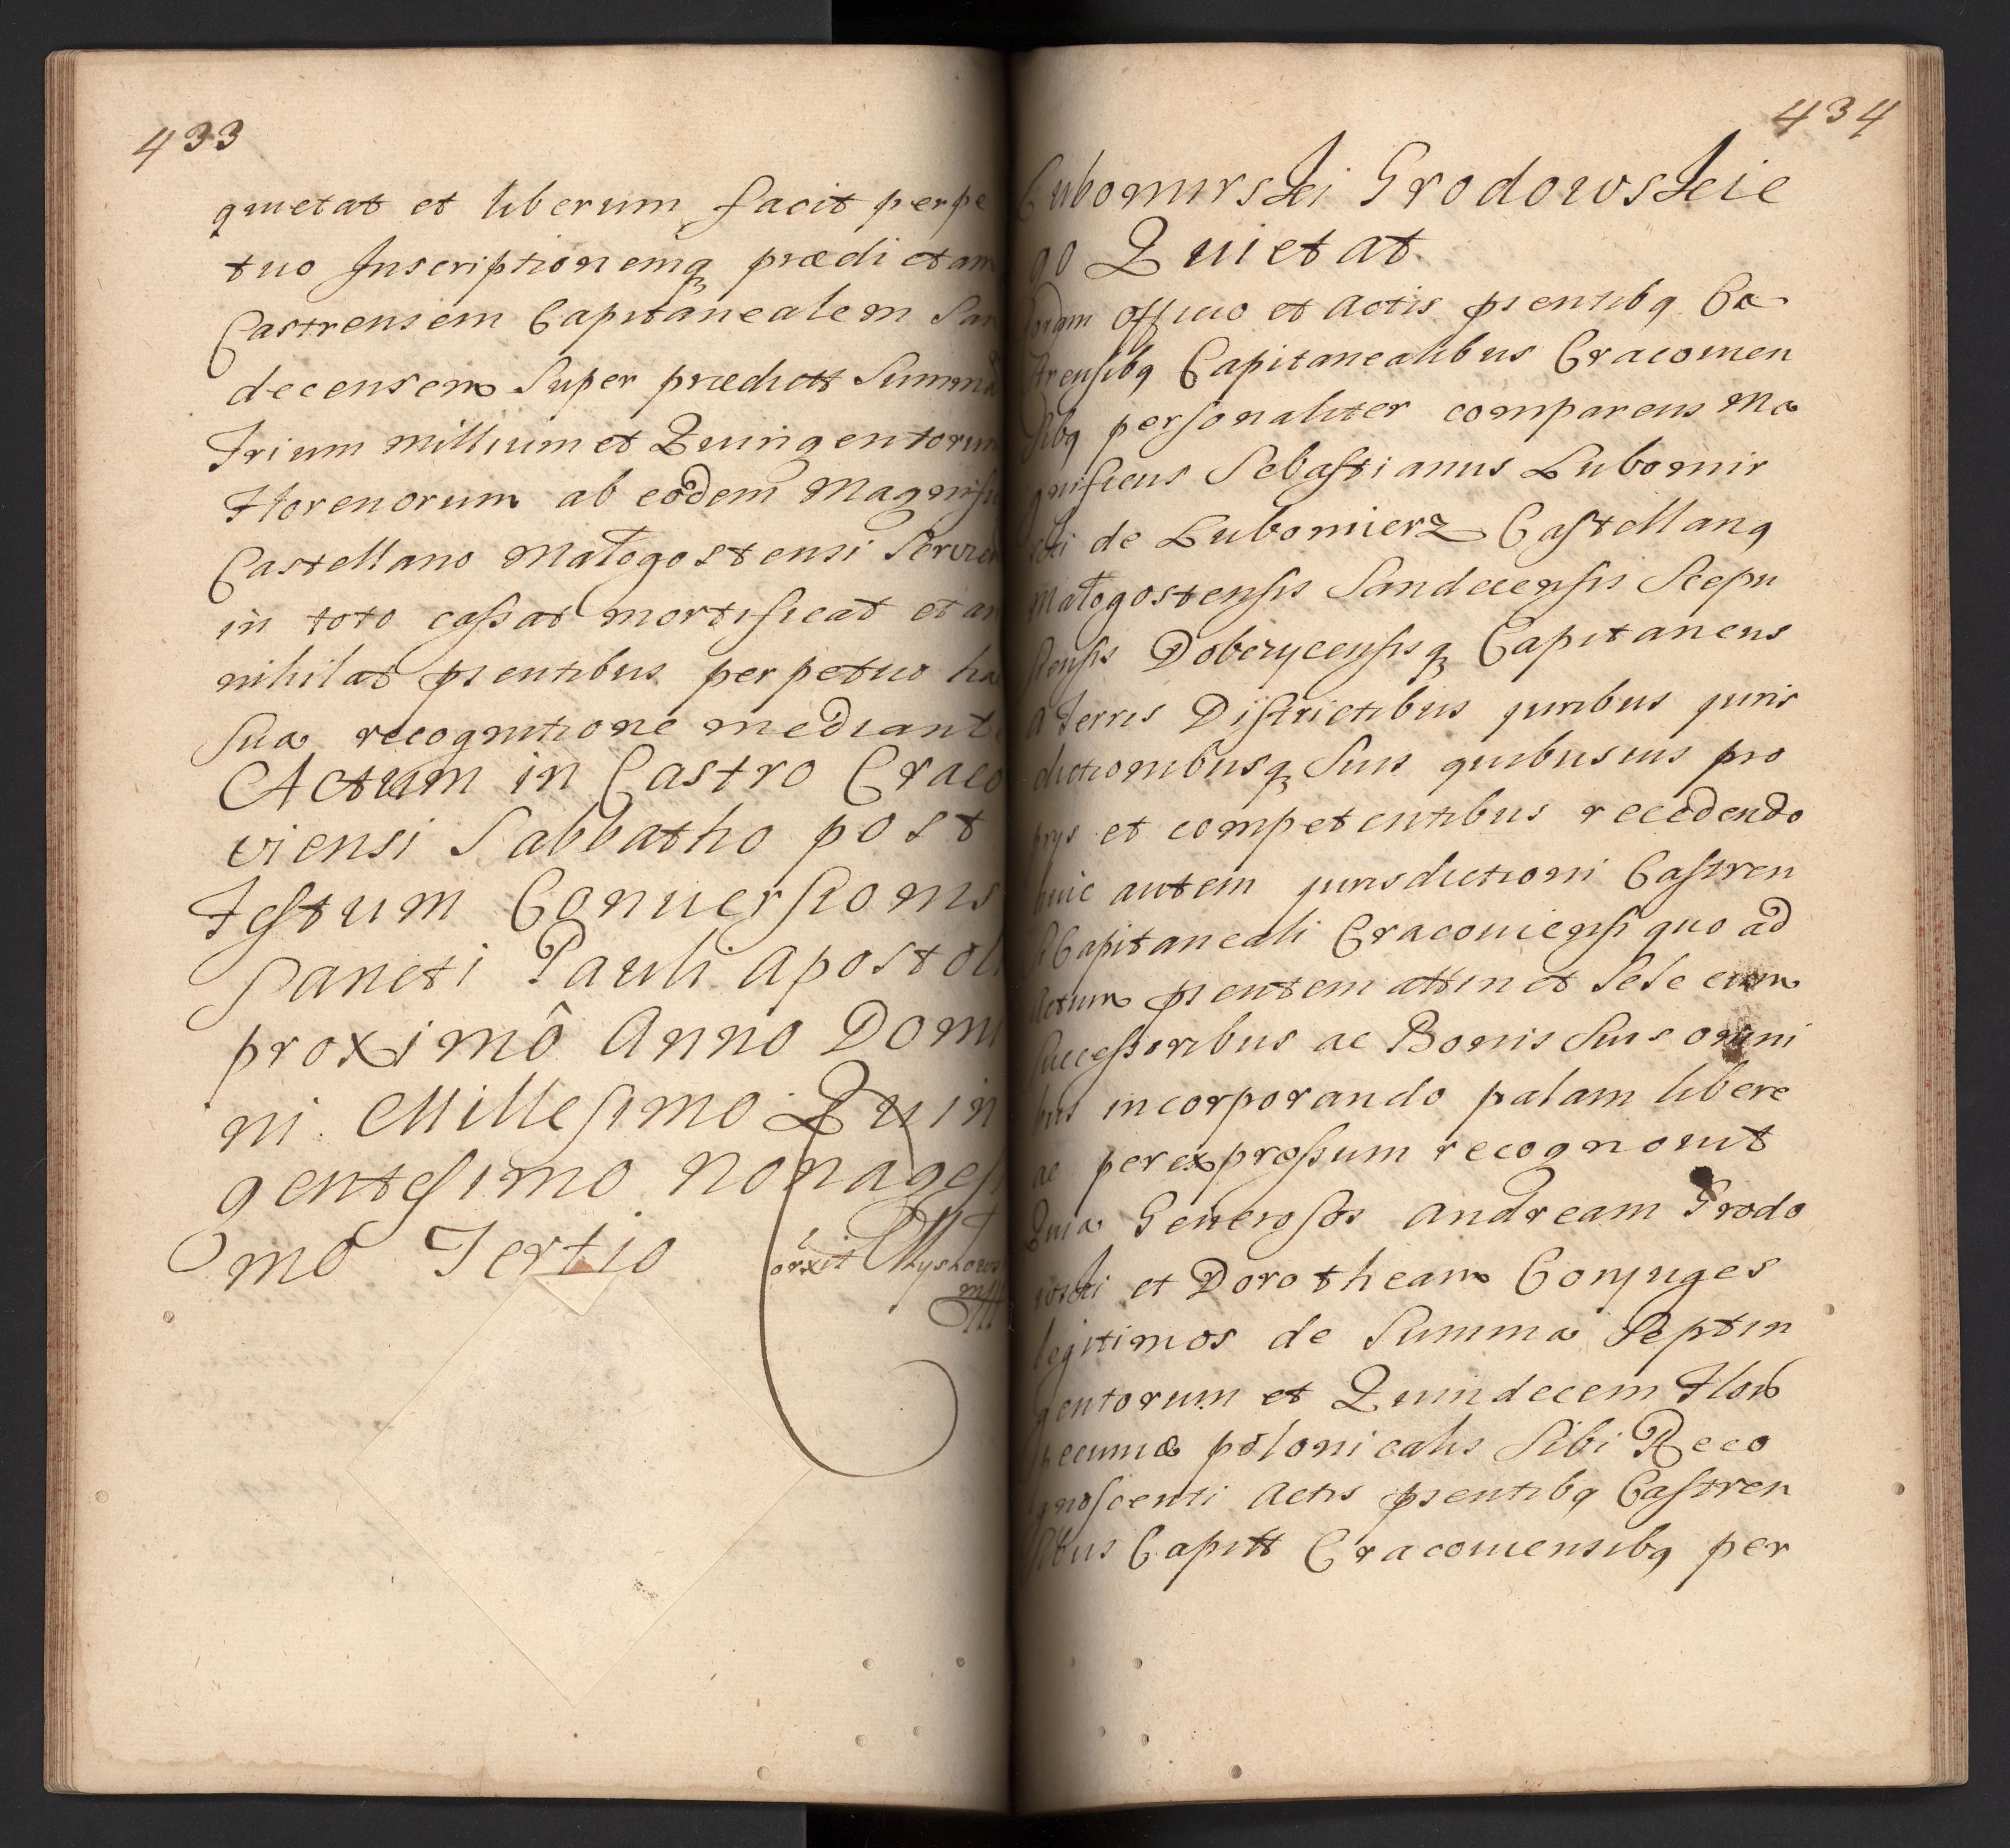 433
quietat et liberum facit perpe
tuo Inscriptionemq prædictam
Castrensem Capitanealem San
decensem Super prædictt Summa
Trium millium et Quingentorum
Florenorum ab eodem Magnifi
Castellano Małogostensi Servien
in toto cassat mortificat et an
nihilat pntibus perpetuo hac
sua recognitione mediante
Actum in Castro Craco
viensi Sabbatho post
Festum Conuersionis
Sancti Pauli Apostoli
proximô Anno Domi
ni Millesimo Quin
gentesimo nonagesi
mo Tertio
434
Lubomirski Grodowskie
go Quietat
Coram Officio et Actis pntibq Ca
strensibq Capitanealibus Cracouien
sibq personaliter comparens Ma
gnificus Sebastianus Lubomir
ski de Lubomierz Castellanq
Małogostensis Sandecensis Scepu
siensis Dobczycensisq Capitaneus
A Terris Districtibus juribus juris
dictionibusq Suis quibusuis pro
prys et competentibus recedendo
huic autem jurisdictioni Castren
Capitaneali Cracouiensi quo ad
Actum pntem attinet Sese cum
Successoribus ac Bonis Suis omni
bus incorporando palam libere
ac per expressum recognouit
Quia Generosos Andream Grodo
wski et Dorotheam Conjuges
legitimos de Summa Septin
gentorum et Quindecem Flor
pecuniæ polonicalis Sibi Reco
gnoscenti Actis pntibq Castren
sibus Capitt Cracouiensibq per